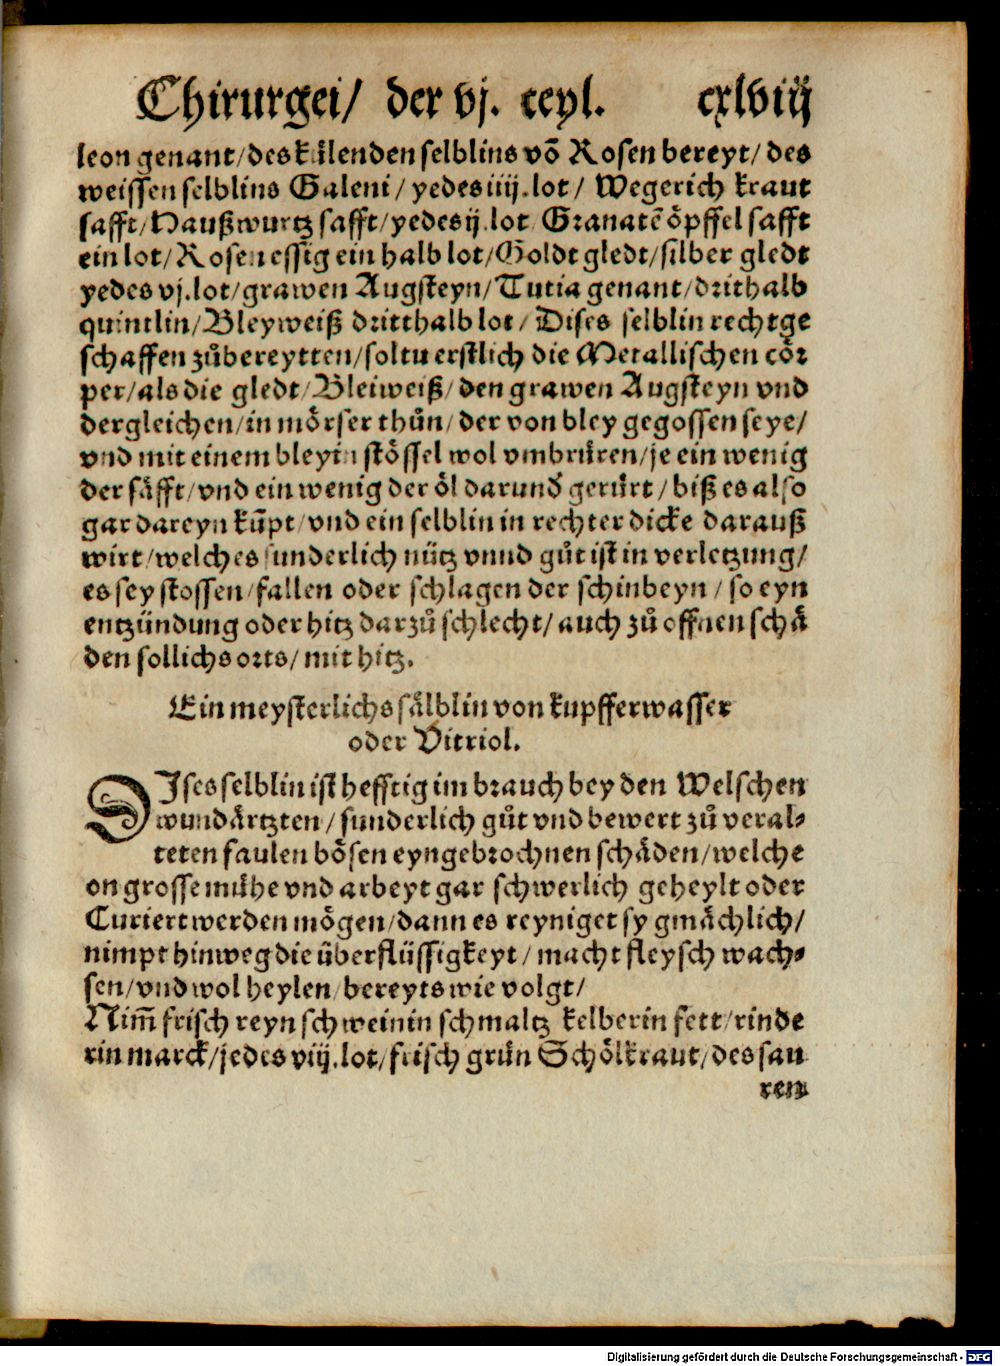 Chirurgei/ der vj. teyl. cxlviij
leon genant/ des kůlenden selblins võ Rosen bereyt/ des
weissen selblins Galeni/ yedes iiij.lot/ Wegerich kraut
safft/ Haußwurtz safft/ yedes ij.lot Granatẽ öpffel safft
ein lot/ Rosen essig ein halb lot/ Goldt gledt/ silber gledt
yedes vj.lot/ grawen Augsteyn/ Tutia genant/ drithalb
quintlin/ Bleyweiß dritthalb lot/ Dises selblin recht ge
schaffen zůbereytten/ soltu erstlich die Metallischen cör
per/ als die gledt/ Bleiweiß/ den grawen Augsteyn vnd
dergleichen/ in mörser thůn/ der von bley gegossen seye/
vnd mit einem bleyin stössel wol vmbrüren/ je ein wenig
der säfft/ vnd ein wenig der öl darund gerürt/ biß es also
gar dareyn kum̃pt/ vnd ein selblin in rechter dicke darauß
wirt/ welches sunderlich nütz vnnd gůt ist in verletzung/
es sey stossen/ fallen oder schlagen der schinbeyn/ so eyn
entzündung oder hitz darzů schlecht/ auch zů offnen schä
den sollichs orts/ mit hitz.
Ein meysterlichs sälblin von kupfferwasser
oder Vitriol.
DIses selblin ist hefftig im brauch bey den Welschen
wundärtzten/ sunderlich gůt vnd bewert zů veral-
teten faulen bösen eyngebrochnen schäden/ welche
on grosse mühe vnd arbeyt gar schwerlich geheylt oder
Curiert werden mögen/ dann es reyniget sy gmächlich/
nimpt hinweg die überflüssigkeyt/ macht fleysch wach-
sen/ vnd wol heylen/ bereyts wie volgt/
Nim̃ frisch reyn schweinin schmaltz kelberin fett/ rinde
rin marck/ jedes viij.lot/ frisch grün Schölkraut/ des sau
ren
Digitalisierung gefördert durch die Deutsche Forschungsgemeinschaft - DFG